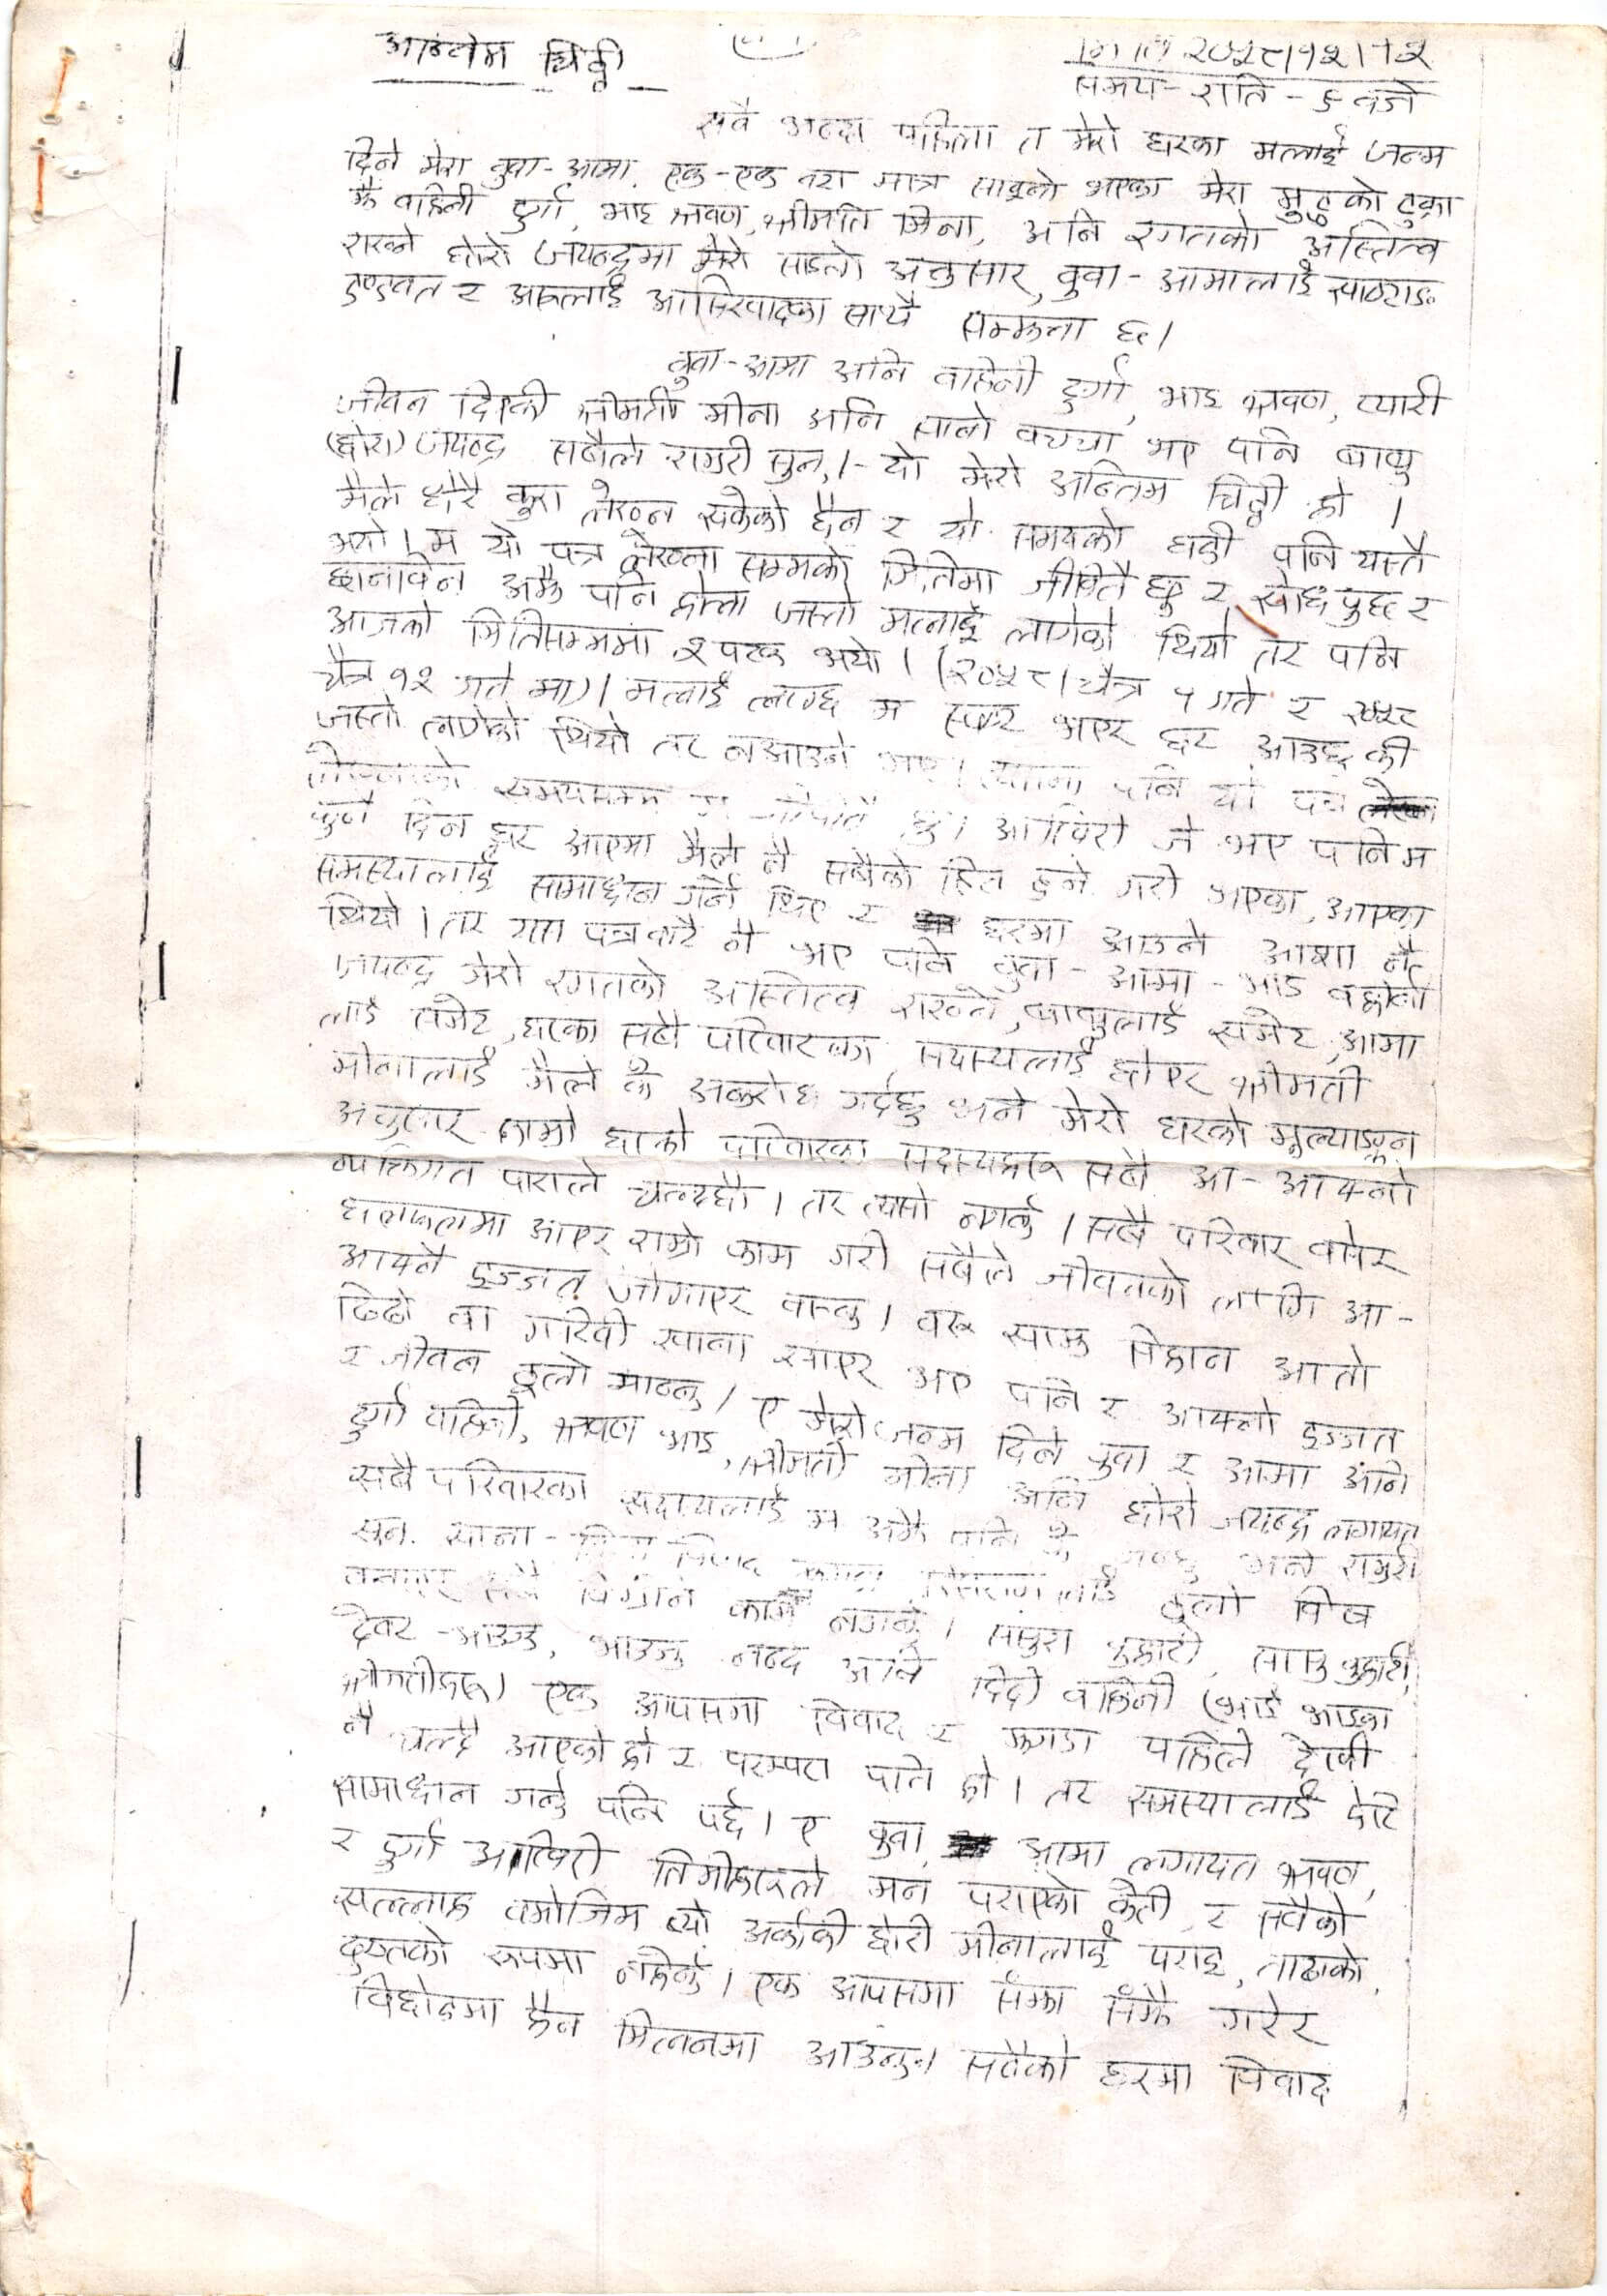 अन्तिम चिठ्ठी
मिति २०५८।१२।१२
समय - राति - ९ बजे
सबै भन्दा पहिला त मेरो घरका मलाई जन्म
दिने मेरा बुवा-आमा, एक-एक मात्र साइनो भएका मेरा मुटुको टुक्रा
झैं बाहिनी दुर्गा, भाइ श्रवण, श्रीमति मिना, अनि रगतको अस्तित्व
राख्ने छोरो जयन्द्रमा मेरो साइनो अनुसार, बुवा-आमालाई साष्टाङ्ग
दण्डवत र अरुलाई आसिरवादका साथै सम्झना छ।
बुवा-आमा अनि बाहिनी दुर्गा, भाइ श्रवण, प्यारी
जीवन दिएकी श्रीमती मीना अनि सानो बच्चा भए पनि बाबु
(छोरा) जयन्द्र सबैले रामरी सुन,।- यो मेरो अन्तिम चिठ्ठी हो ।
मैले धेरै कुरा लेख्न सकेको छैन र यो समयको घडी पनि यस्तै
भयो। म यो पत्र लेख्ना सम्मको मितिमा जीवितै छु र सोधपुछ र
छानविन अझै पनि होला जस्तो मलाई लागेको थियो तर पनि
आजको मितिसम्ममा २ पटक भयो। (२०५८।चैत्र ५ गते र २०५८
चैत्र १२ गते मा)। मलाई लाग्छ म भएर घर आउछु की
जस्तो लागेको थियो तर नआउने भए। पनि यो पत्र
समयसम्म म छु। आखिरी जे भए पनि म
कुनै दिन घर आएमा मैले नै सबैको हित हुने गरी भएका, आएका
समस्यालाई सामाधान गर्ने थिए र घरमा आउने आशा नै
थियो। तर यस पत्रबाटै नै भए पनि बुवा-आमा-भाइ बहिनी
जयन्द्र मेरो रगतको अस्तित्व राख्ने, बाबुलाई समेट, आमा
लाई समेट, घरका सबै परिवारका सदस्यलाई छोएर श्रीमती
मीनालाई मैले के अनुरोध गर्दछु भने मेरो घरको मूल्याङ्कन
अनुसार हाम्रो घरको परिवारका सदस्यहरु सबै आ-आफ्नो
व्यक्तिगत पाराले चल्दछौ। तर त्यसो नगर्नु। सबै परिवार बसेर
छलफलमा आएर राम्रो काम गरी सबैले जीवनको लागि आ-
आफ्नै इज्जत जोगाएर बाच्नु। बरु साझ बिहान आतो
ढिडो वा गरिबी खाना खाएर भए पनि र आफ्नो इज्जत
र जीवन ठूलो मान्नु। ए मेरो जन्म दिने बुवा र आमा अनि
दुर्गा बहिनी, श्रवण भाइ, श्रीमती मीना अनि छोरो जयन्द्र लगायत
सबै परिवारका सदस्यलाई म अझै पनि के भन्दछु भने रामुरी
सुन. साना- ठूलो विख
बनाएर काम नगर्नु। ससुरा बुहारी, सासु बुहारी,
देवर-भाउजु, भाउजु नन्द अनि दिदी बहिनी (भाई भाइका
श्रीमतीहरु) एक आपसमा विवाद र झगडा पहिले देखी
नै चल्दै आएको हो र परम्परा पनि हो। तर समस्यालाई फेरि
सामाधान गर्नु पनि पर्छ। ए बुवा, आमा लगायत श्रवण,
र दुर्गा आखिरी तिमीहरुले मन पराएको केटी र सबैको
सल्लाह बमोजिम त्यो अर्काकी छोरी मीनालाई पराइ, ताढाको,
दुस्तको रूपमा नहेर्नु। एक आपसमा सँझा सँझै गरेर
विछोडमा हैन मिलनमा आउनु। सबैको घरमा विवाद